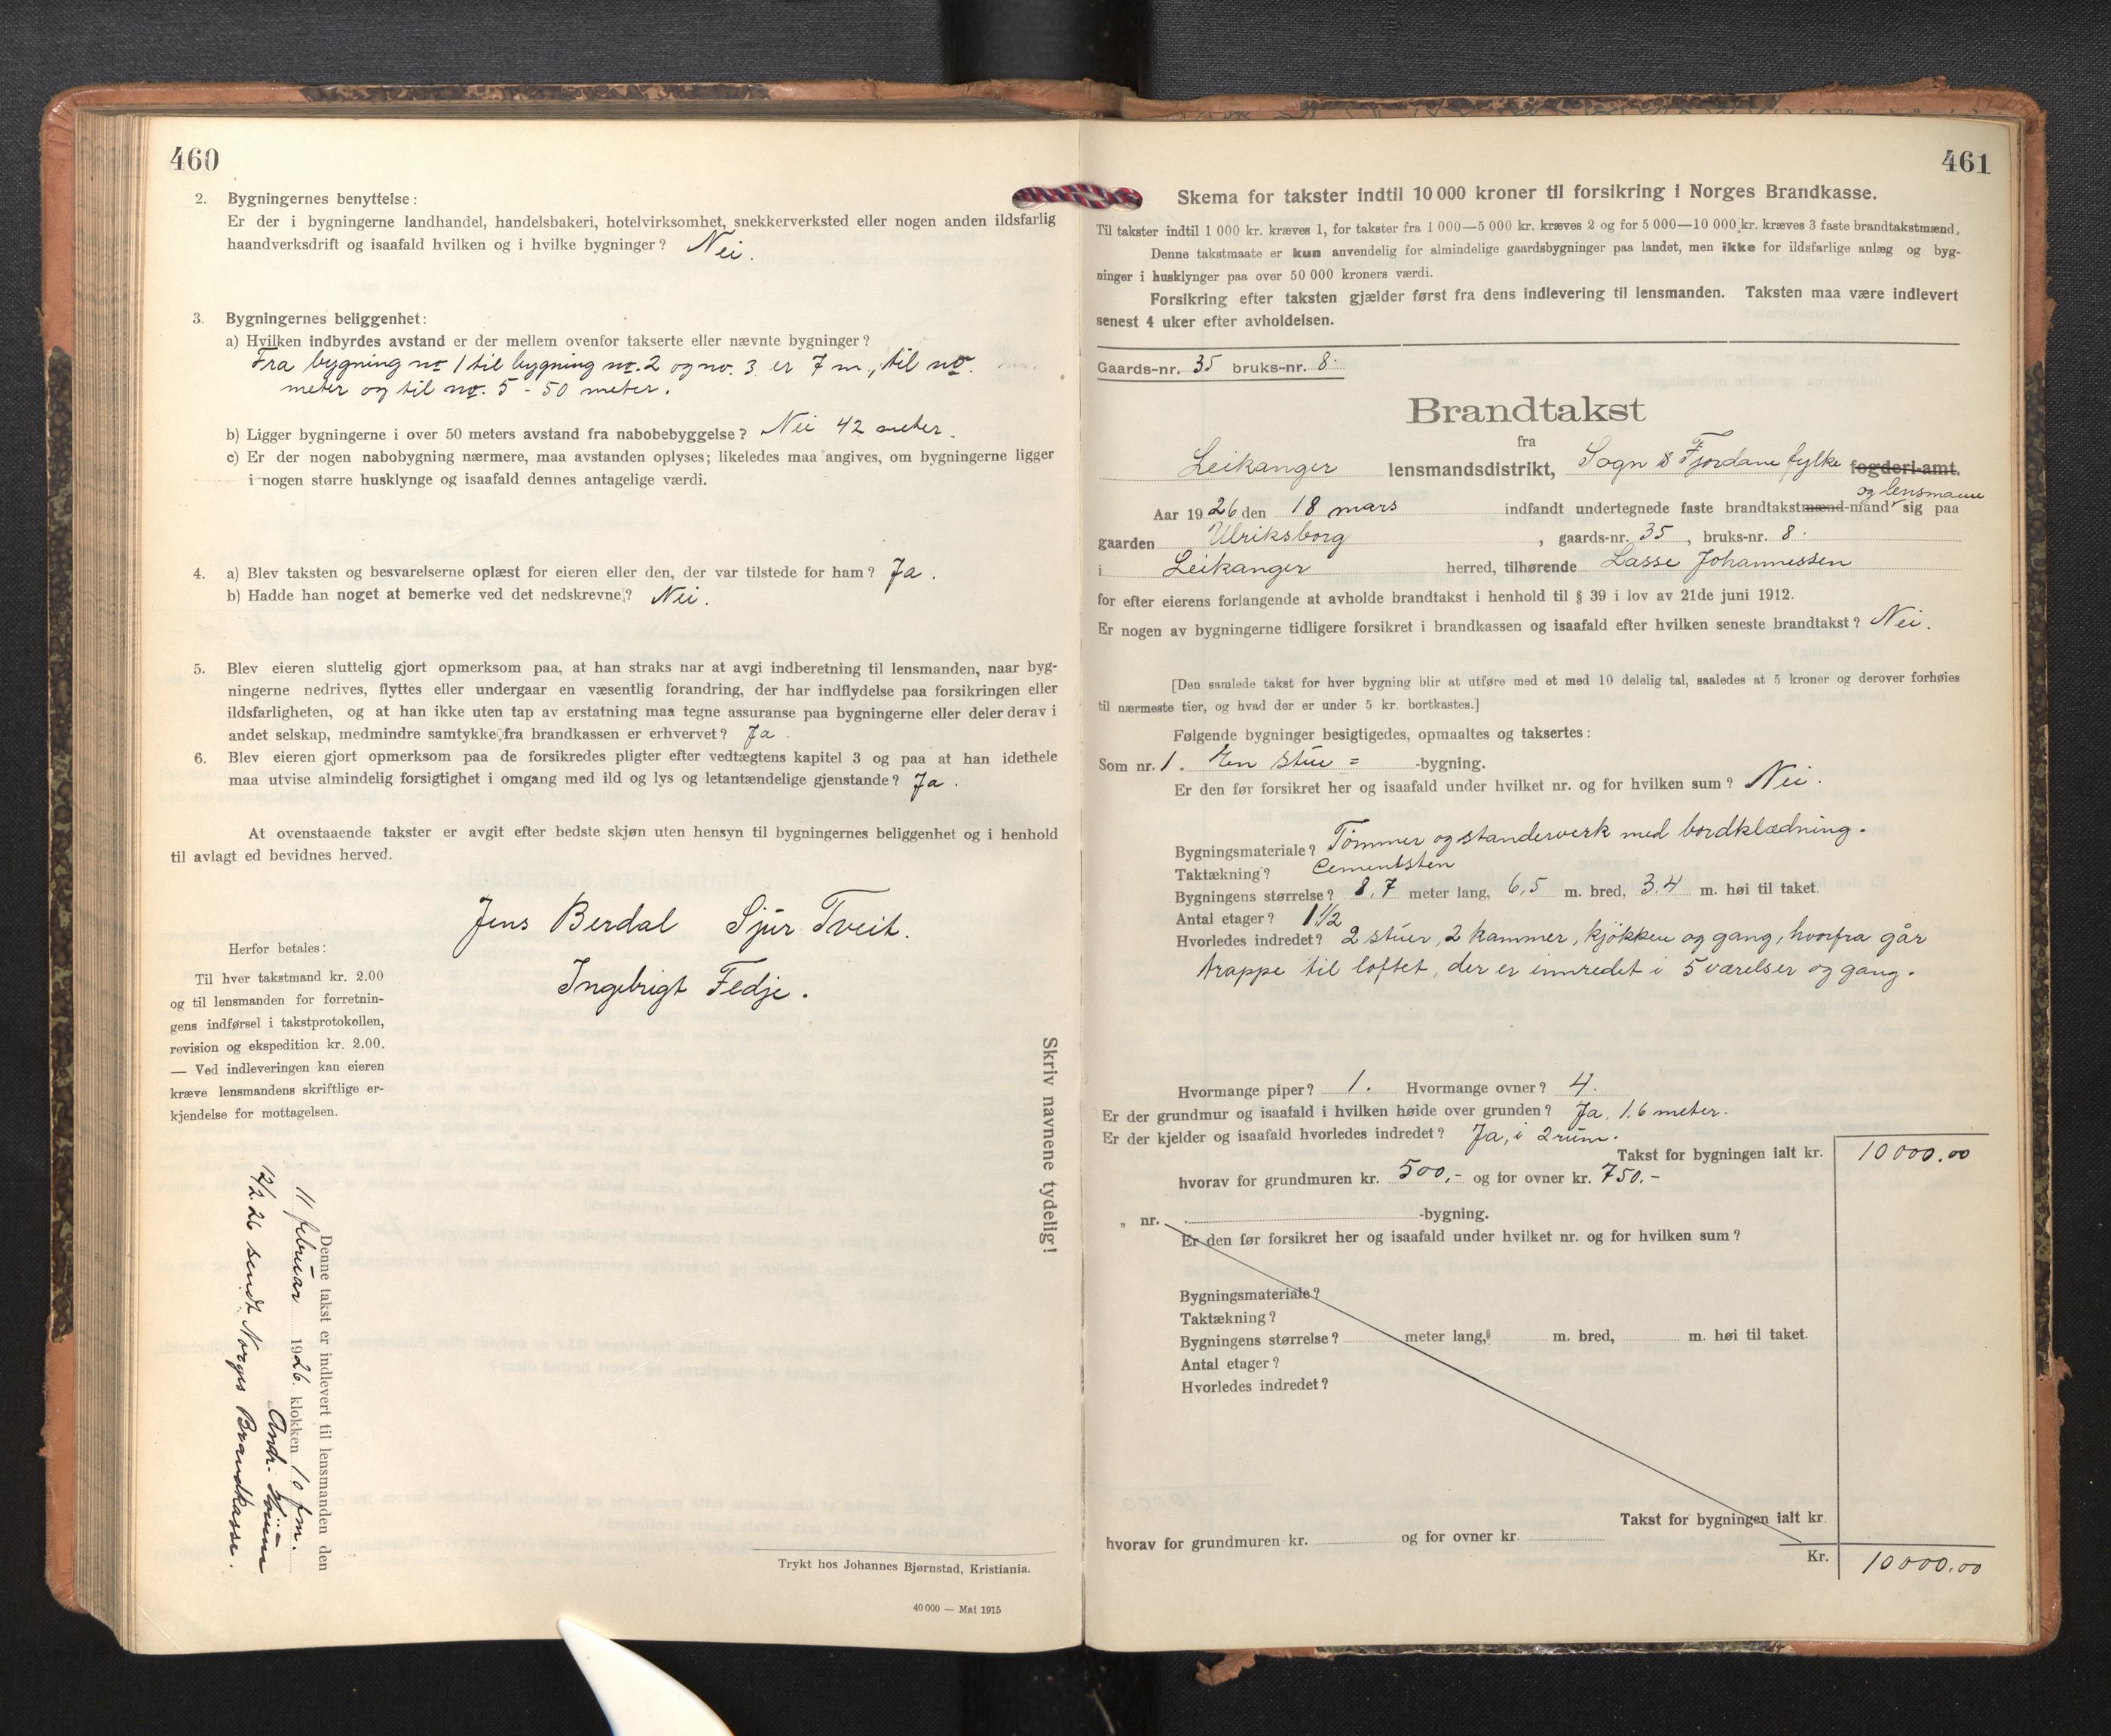 460
2. Bygningernes benyttelse:
Er der i bygningerne landhandel, handelsbakeri, hotelvirksomhet, snekkerverksted eller nogen anden ildsfarlig
haandverksdrift og isaafald hvilken og i hvilke bygninger? Nei.
3. Bygningernes beliggenhet:
a) Hvilken indbyrdes avstand er der mellem ovenfor takserte eller nævnte bygninger?
Fra bygning no 1 til bygning no. 2 og no. 3 er 7 m., til no.
meter og til no. 5 - 50 meter.
b) Ligger bygningerne i over 50 meters avstand fra nabobebyggelse? Nei 42 meter.
c) Er der nogen nabobygning nærmere, maa avstanden oplyses; likeledes maa angives, om bygningerne ligger
i nogen større husklynge og isaafald dennes antagelige værdi.
4. a) Blev taksten og besvarelserne oplæst for eieren eller den, der var tilstede for ham? Ja.
b) Hadde han noget at bemerke ved det nedskrevne? Nei.
5. Blev eieren sluttelig gjort opmerksom paa, at han straks har at avgi indberetning til lensmanden, naar byg-
ningerne nedrives, flyttes eller undergaar en væsentlig forandring, der har indflydelse paa forsikringen eller
ildsfarligheten, og at han ikke uten tap av erstatning maa tegne assuranse paa bygningerne eller deler derav i
andet selskap, medmindre samtykke fra brandkassen er erhvervet? Ja.
6. Blev eieren gjort opmerksom paa de forsikredes pligter efter vedtægtens kapitel 3 og paa at han idethele
maa utvise almindelig forsigtighet i omgang med ild og lys og letantændelige gjenstande? Ja.
At ovenstaaende takster er avgit efter bedste skjøn uten hensyn til bygningernes beliggenhet og i henhold
til avlagt ed bevidnes herved.
Jens Berdal Sjur Tveit.
Ingebrigt Fedje.
Herfor betales:
Til hver takstmand kr. 2.00
og til lensmanden for forretnin-
gens indførsel i takstprotokollen,
revision og ekspedition kr. 2.00.
— Ved indleveringen kan eieren
kræve lensmandens skriftlige er-
kjendelse for mottagelsen.
Skriv navnene tydelig!
Denne takst er indlevert til lensmanden den
11 februar 1926. klokken 10 fm.
Andr.
12/2 26 sendt Norges Brandkasse.
Trykt hos Johannes Bjørnstad, Kristiania.
40 000 — Mai 1915
461
Skema for takster indtil 10 000 kroner til forsikring i Norges Brandkasse.
Til takster indtil 1 000 kr. kræves 1, for takster fra 1 000—5 000 kr. kræves 2 og for 5 000—10 000 kr. kræves 3 faste brandtakstmænd.
Denne takstmaate er kun anvendelig for almindelige gaardsbygninger paa landet, men ikke for ildsfarlige anlæg og byg-
ninger i husklynger paa over 50 000 kroners værdi.
Forsikring efter taksten gjælder først fra dens indlevering til lensmanden. Taksten maa være indlevert
senest 4 uker efter avholdelsen.
Gaards-nr. 35 bruks-nr. 8.
Brandtakst
fra
Leikanger lensmandsdistrikt, Sogn & Fjordane fylke fogderi-amt.
og lensmann
Aar 1926 den 18 mars indfandt undertegnede faste brandtakstmænd-mand sig paa
gaarden Ulriksborg, gaards-nr. 35, bruks-nr. 8.
i Leikanger herred, tilhørende Lasse Johannessen
for efter eierens forlangende at avholde brandtakst i henhold til § 39 i lov av 21de juni 1912.
Er nogen av bygningerne tidligere forsikret i brandkassen og isaafald efter hvilken seneste brandtakst? Nei.
[Den samlede takst for hver bygning blir at utføre med et med 10 delelig tal, saaledes at 5 kroner og derover forhøies
til nærmeste tier, og hvad der er under 5 kr. bortkastes.]
Følgende bygninger besigtigedes, opmaaltes og taksertes:
Som nr. 1. En stue = -bygning.
Er den før forsikret her og isaafald under hvilket nr. og for hvilken sum? Nei.
Bygningsmateriale? Tömmer og standerverk med bordklædning.
Taktækning? Cementsten
Bygningens størrelse? 8,7 meter lang, 6,5 m. bred, 3.4 m. høi til taket.
Antal etager? 1 1/2
Hvorledes indredet? 2 stuer, 2 kammer, kjökken og gang, hvorfra går
trappe til loftet, der er innredet i 5 værelser og gang.
Hvormange piper? 1. Hvormange ovner? 4.
Er der grundmur og isaafald i hvilken høide over grunden? Ja, 1.6 meter.
Er der kjelder og isaafald hvorledes indredet? Ja, i 2 rum.
Takst for bygningen ialt kr. 10000.00
hvorav for grundmuren kr. 500,- og for ovner kr. 750.-
„ nr. -bygning.
Er den før forsikret her og isaafald under hvilket nr. og for hvilken sum?
Bygningsmateriale?
Taktækning?
Bygningens størrelse? meter lang, m. bred, m. høi til taket.
Antal etager?
Hvorledes indredet?
Takst for bygningen ialt kr
hvorav for grundmuren kr. og for ovner kr.
Kr. 10000.00